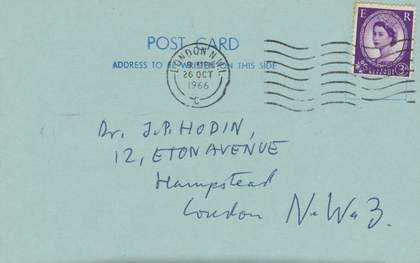 E R
POST CARD
ADDRESS TO BE WRITTEN ON THIS SIDE
LONDON N.W.1.
26 OCT
1966
C
POSTAGE REVENUE
3D
Dr. J.P. HODIN,
12, ETON AVENUE
Hampstead
London N.W.3.